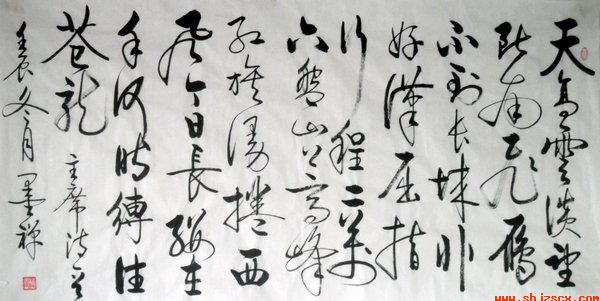 天高雲淡望
断南飛雁
不到长城非
好漢屈指
行程二萬
六盤山上高峰
红旗漫捲西
风今日長缨在
手何时縛住
苍龍
主席诗
壬辰冬月 墨禅
www.shjzscx.com